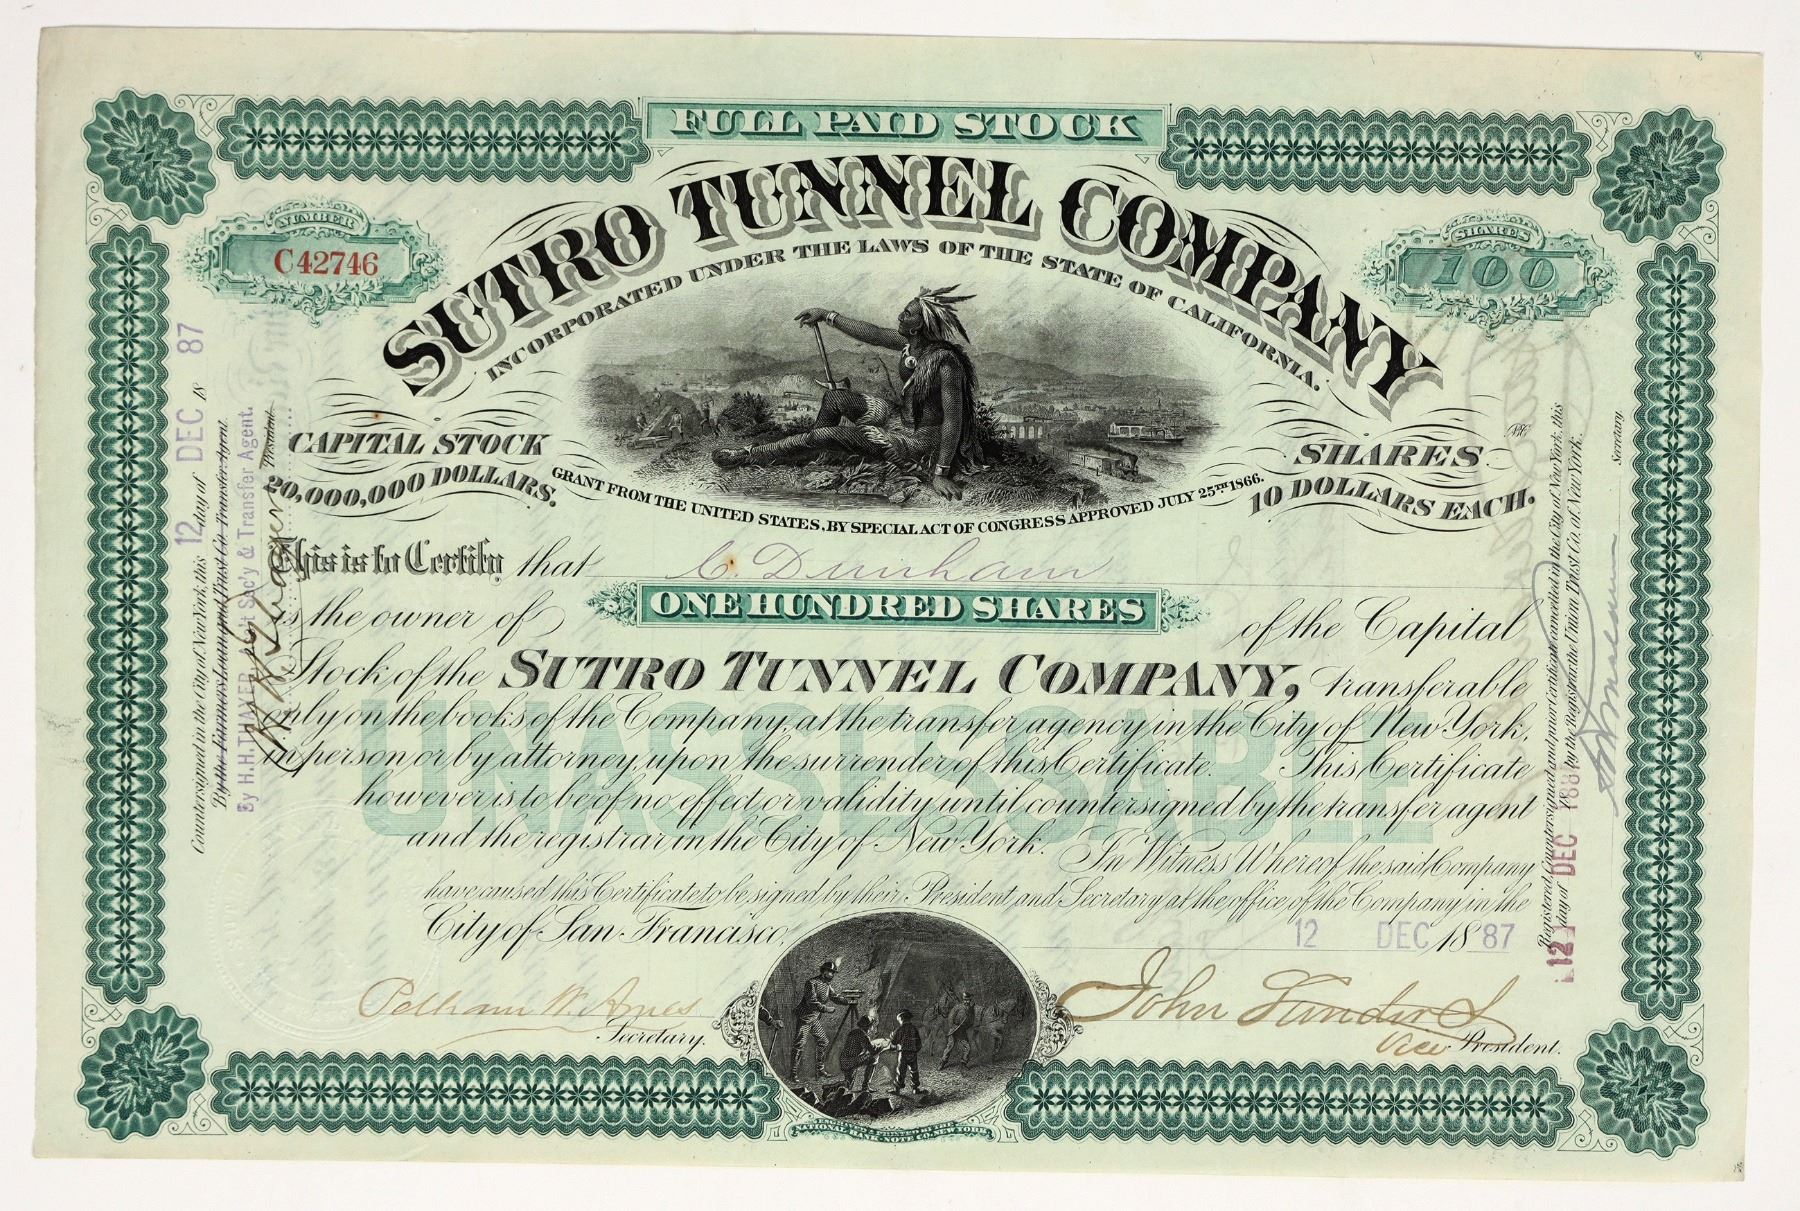 FULL PAID STOCK
SUTRO TUNNEL COMPANY
INCORPORATED UNDER THE LAWS OF THE STATE OF CALIFORNIA.
NUMBER
C42746
SHARES
100
CAPITAL STOCK
20,000,000 DOLLARS.
SHARES
10 DOLLARS EACH.
GRANT FROM THE UNITED STATES, BY SPECIAL ACT OF CONGRESS APPROVED JULY 25TH 1866.
This is to Certify that C. Dunham
is the owner of ONE HUNDRED SHARES of the Capital
Stock of the SUTRO TUNNEL COMPANY, transferable
only on the books of the Company, at the transfer agency in the City of New York,
in person or by attorney, upon the surrender of this Certificate. This Certificate
however is to be of no effect or validity until countersigned by the transfer agent
and the registrar in the City of New York. In Witness Whereof the said Company
have caused this Certificate to be signed by their President and Secretary at the office of the Company in the
City of San Francisco, 12 DEC 1887
UNASSESSABLE
Pelham W. Ames
Secretary.
John
Vice President.
ENGRAVED & PRINTED BY THE
NATIONAL BANK NOTE CO. NEW YORK
Countersigned in the City of New York, this 12 day of DEC 1887
By the Farmers Loan and Trust Co. Transfer Agent.
By H.H. THAYER, Ass't Sec'y & Transfer Agent.
President
Registered, Countersigned and prior Certificate cancelled in the City of New York, this
12 day of DEC 188 by the Registrar the Union Trust Co. of New York.
Secretary